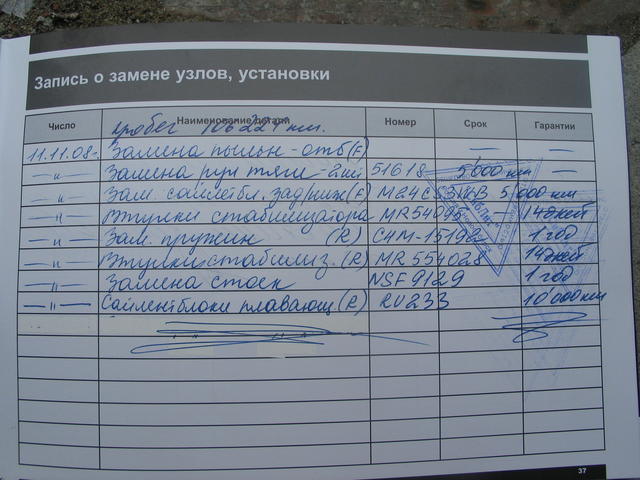 Запись о замене узлов, установки
Число Наименование детали Номер Срок Гарантии
пробег 106 224 км.
11.11.08г. Замена пыльн-отб(F) — —
—"— Замена рул тяги - 2шт 51618 5000 км —
—"— Зам. сайлетбл. зад/ниж(F) 5 000 км
—"— Втулки стабилизатора MR54095 — 14 дней
—"— Зам. пружин (R) 1 год
—"— Втулки стабилиз. (R) MR 554028 14 дней
—"— Замена стоек NSF9129 1 год
—"— Сайлентблоки плавающ(R) RU233 10 000 км
37